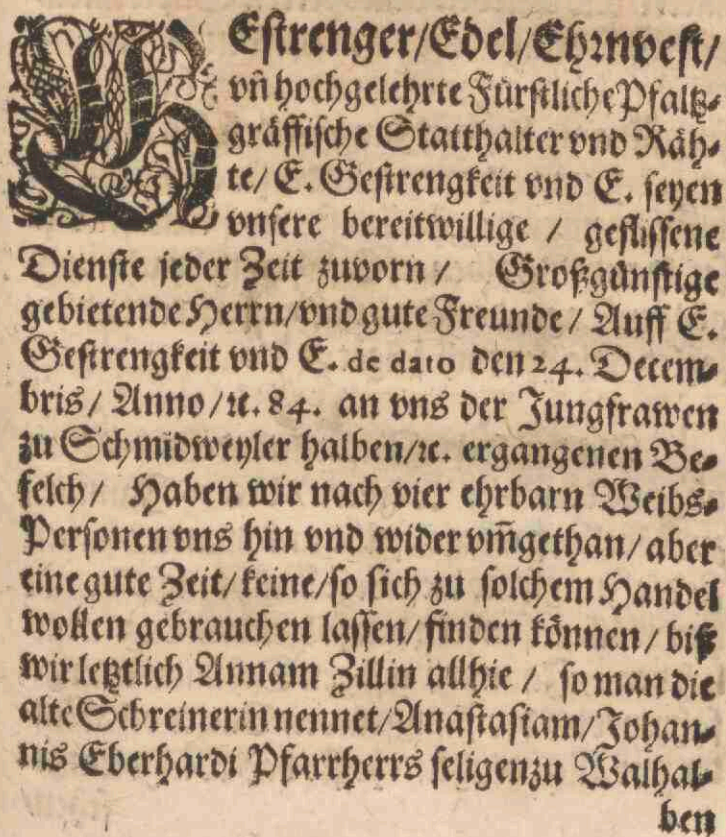 GEstrenger/Edel/Ehrnvest/
vn̄ hochgelehrte Fürstliche Pfaltz⸗
gräffische Statthalter vnd Räh⸗
te/ E. Gestrengkeit vnd E. seyen
vnsere bereitwillige / geflissene
Dienste jeder Zeit zuvorn / Großgünstige
gebietende Herrn/vnd gute Freunde/ Auff E.
Gestrengkeit vnd E. de dato den 24. Decem⸗
bris/ Anno/ꝛc. 84. an vns der Jungfrawen
zu Schmidweyler halben/ꝛc. ergangenen Be⸗
felch/ Haben wir nach vier ehrbarn Weibs⸗
Personen vns hin vnd wider vm̄gethan/ aber
eine gute Zeit/ keine/so sich zu solchem Handel
wollen gebrauchen lassen/ finden können/ biß
wir letztlich Annam Zillin allhie / so man die
alte Schreinerin nennet/Anastasiam/Johan⸗
nis Eberhardi Pfarrherrs seligen zu Walhal⸗
ben